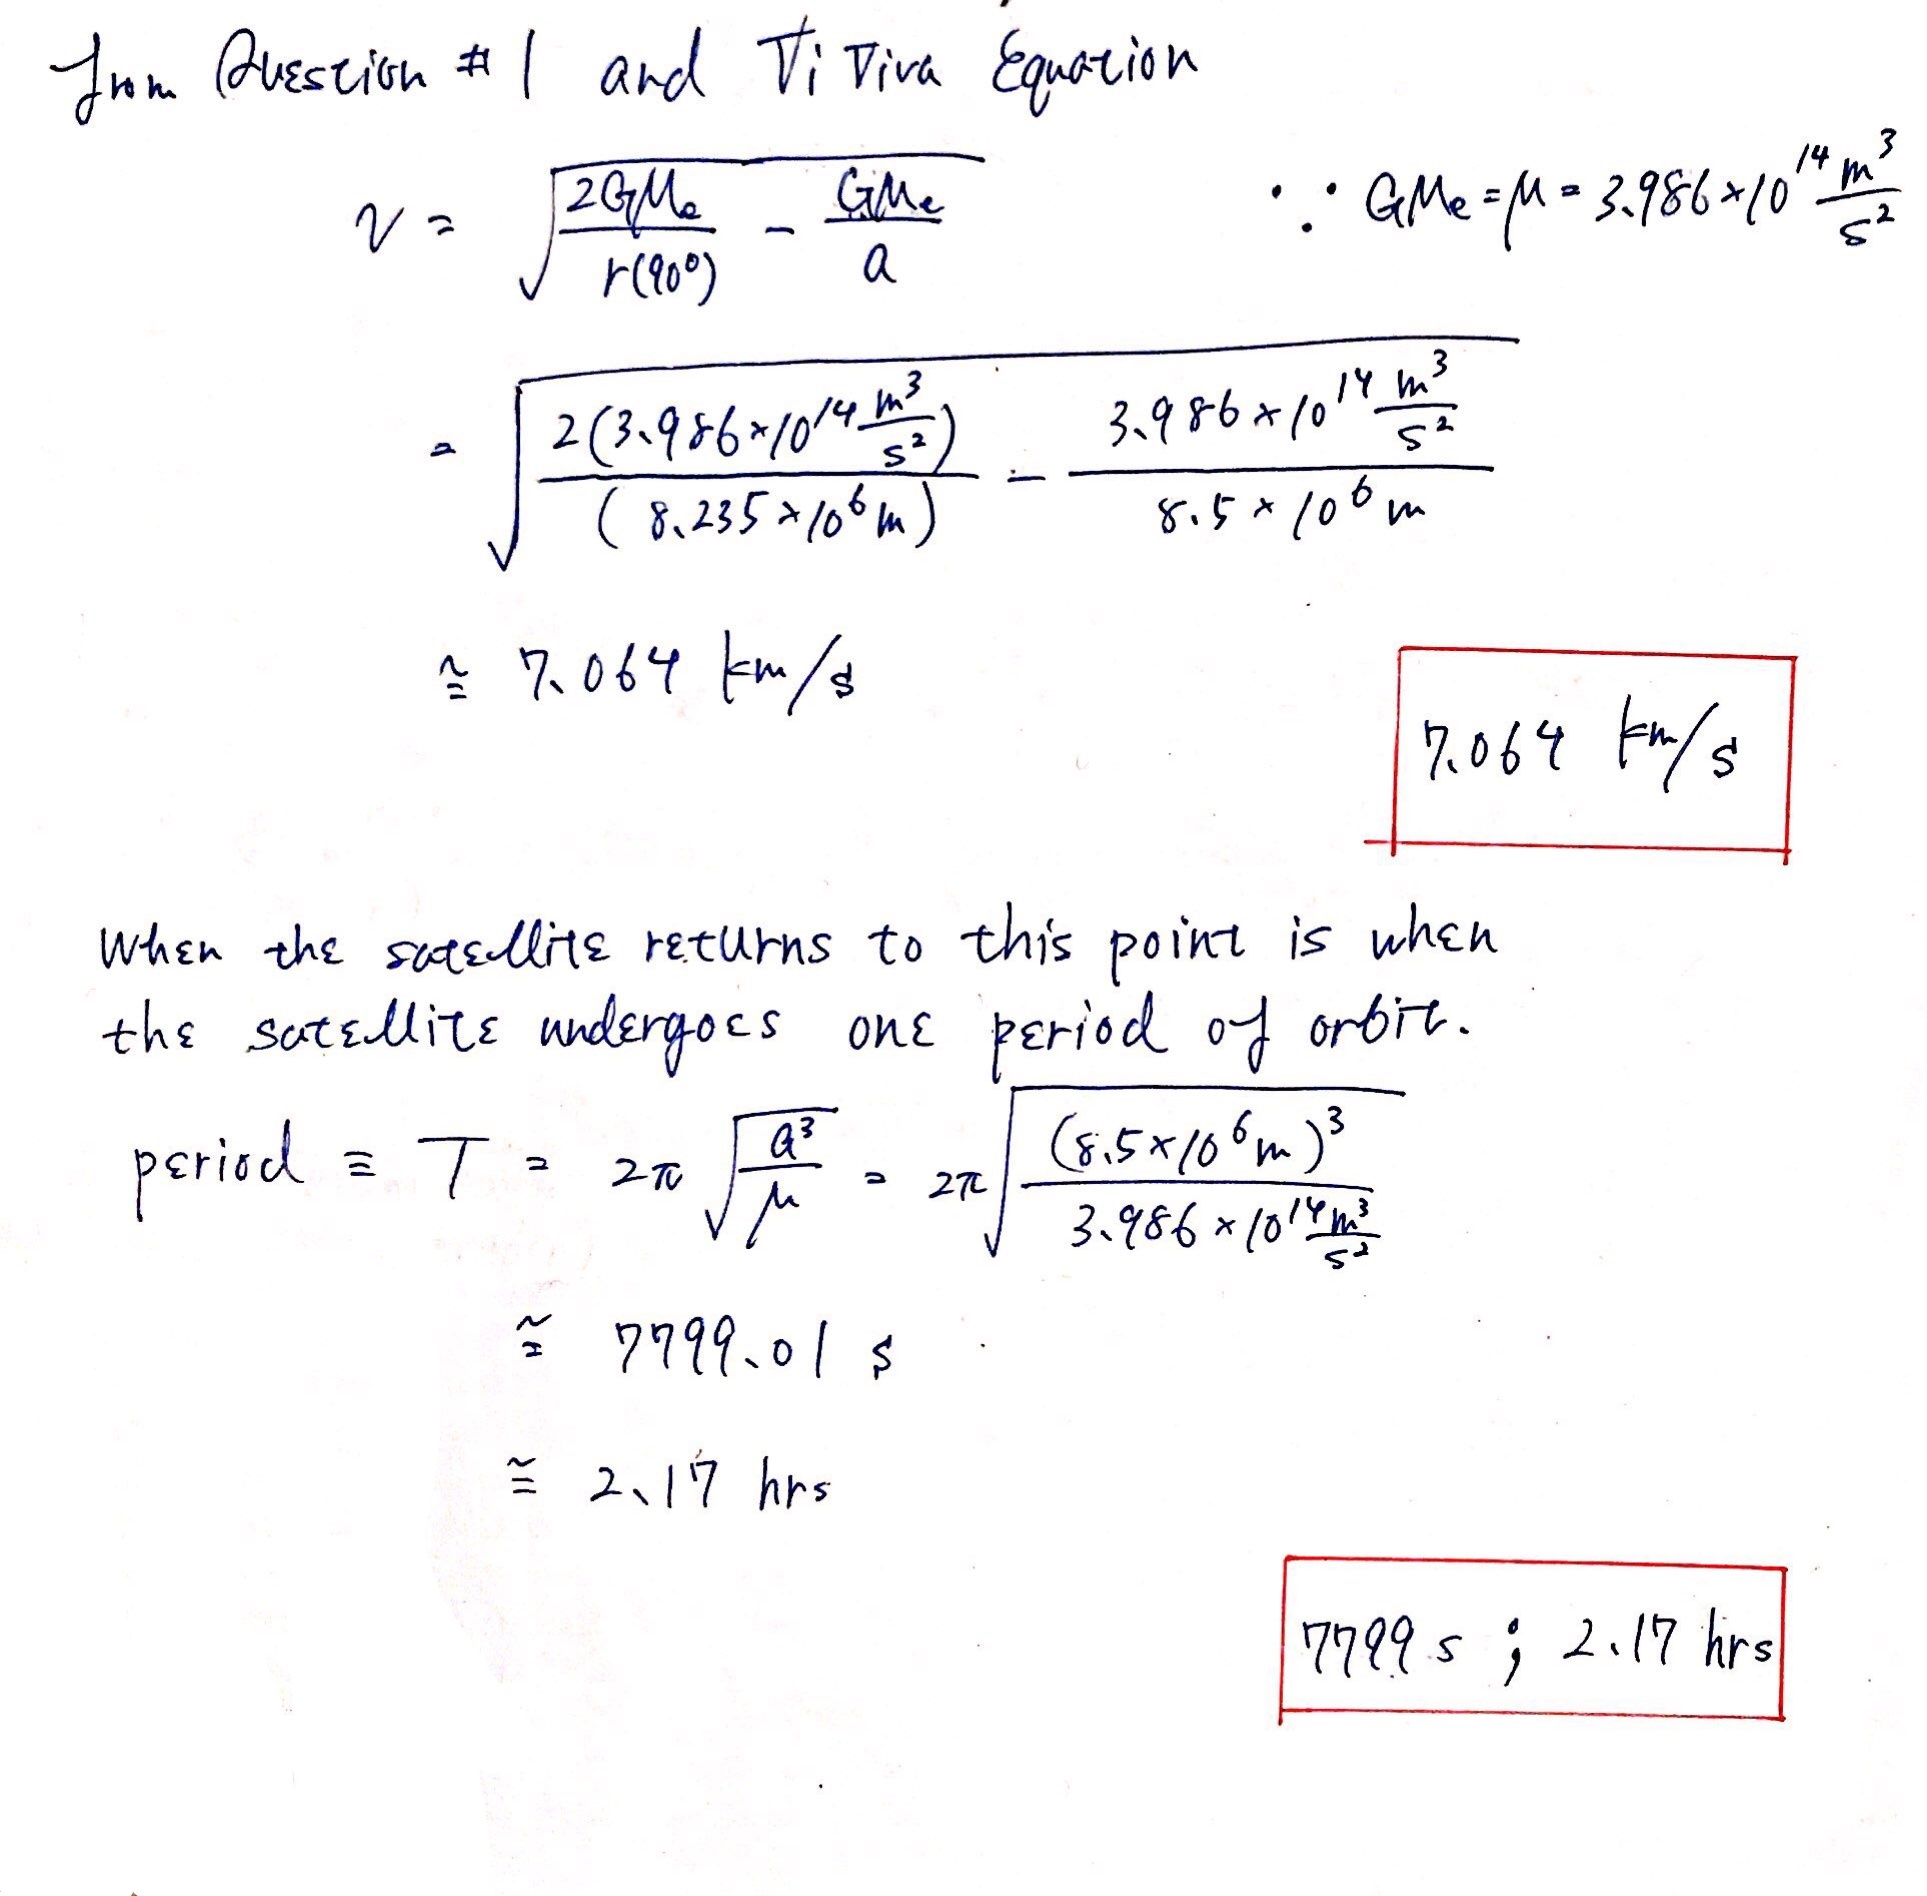 from Question # 1 and Vi Viva Equation
v = √(2GMe / r(90°) - GMe / a) ∵ GMe = μ = 3.986 × 10^14 m^3/s^2
= √(2(3.986 × 10^14 m^3/s^2) / (8.235 × 10^6 m) - 3.986 × 10^14 m^3/s^2 / 8.5 × 10^6 m)
≅ 7.064 km/s
7.064 km/s
When the satellite returns to this point is when
the satellite undergoes one period of orbit.
period ≡ T = 2π √(a^3 / μ) = 2π √((8.5 × 10^6 m)^3 / 3.986 × 10^14 m^3/s^2)
≅ 7799.01 s
≅ 2.17 hrs
7799 s ; 2.17 hrs